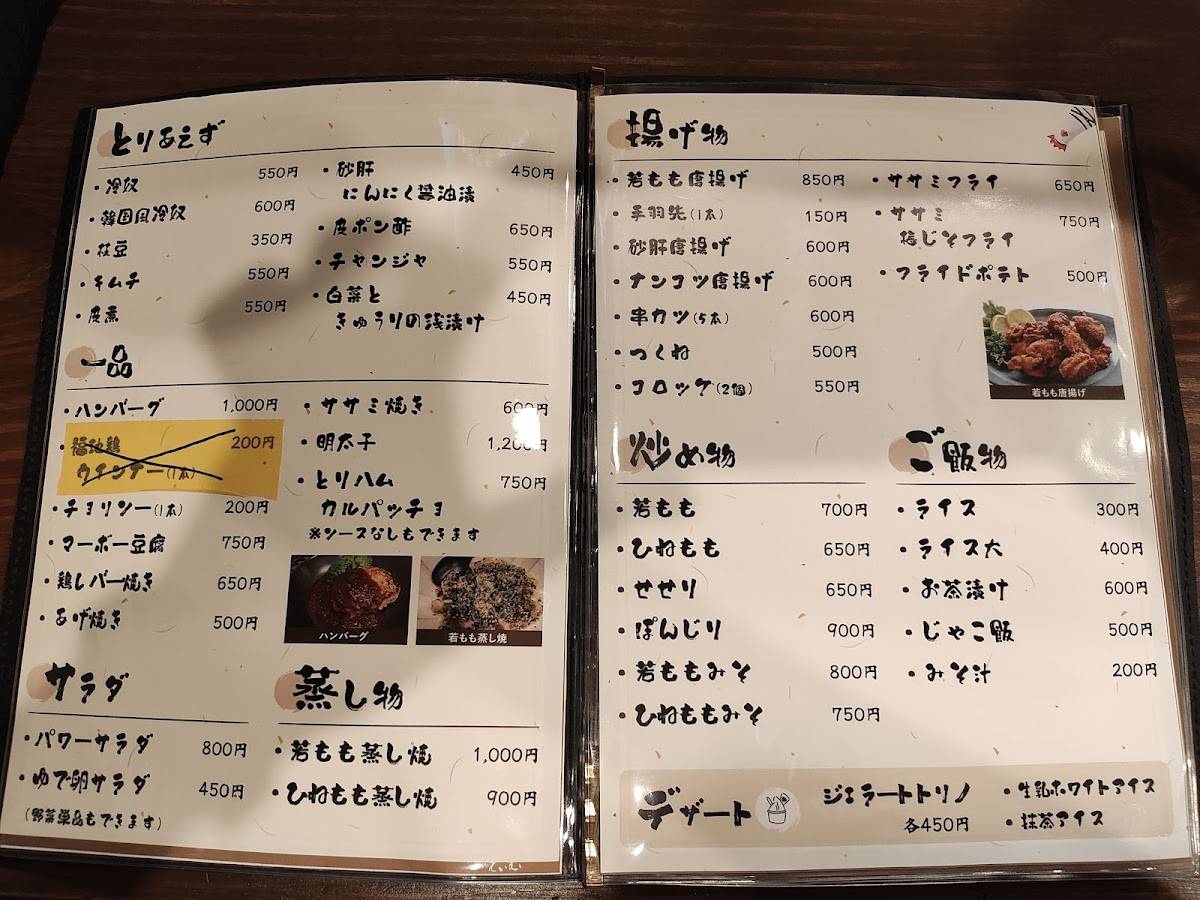 とりあえず
・冷奴 550円
・韓国風冷奴 600円
・枝豆 350円
・キムチ 550円
・皮煮 550円
・砂肝 450円
にんにく醤油漬
・皮ポン酢 650円
・チャンジャ 550円
・白菜と 450円
きゅうりの浅漬け
一品
・ハンバーグ 1,000円
・福地鶏 200円
ウインナー(1本)
・チョリソー(1本) 200円
・マーボー豆腐 750円
・鶏レバー焼き 650円
・あげ焼き 500円
・ササミ焼き 600円
・明太子 1,200円
・とりハム 750円
カルパッチョ
※ソースなしもできます
ハンバーグ
若もも蒸し焼
サラダ
・パワーサラダ 800円
・ゆで卵サラダ 450円
(野菜単品もできます)
蒸し物
・若もも蒸し焼 1,000円
・ひねもも蒸し焼 900円
揚げ物
・若もも唐揚げ 850円
・手羽先(1本) 150円
・砂肝唐揚げ 600円
・ナンコツ唐揚げ 600円
・串カツ(5本) 600円
・つくね 500円
・コロッケ(2個) 550円
・ササミフライ 650円
・ササミ 750円
梅じそフライ
・フライドポテト 500円
若もも唐揚げ
炒め物
・若もも 700円
・ひねもも 650円
・せせり 650円
・ぽんじり 900円
・若ももみそ 800円
・ひねももみそ 750円
ご飯物
・ライス 300円
・ライス大 400円
・お茶漬け 600円
・じゃこ飯 500円
・みそ汁 200円
デザート
ジェラートトリノ
各450円
・生乳ホワイトアイス
・抹茶アイス